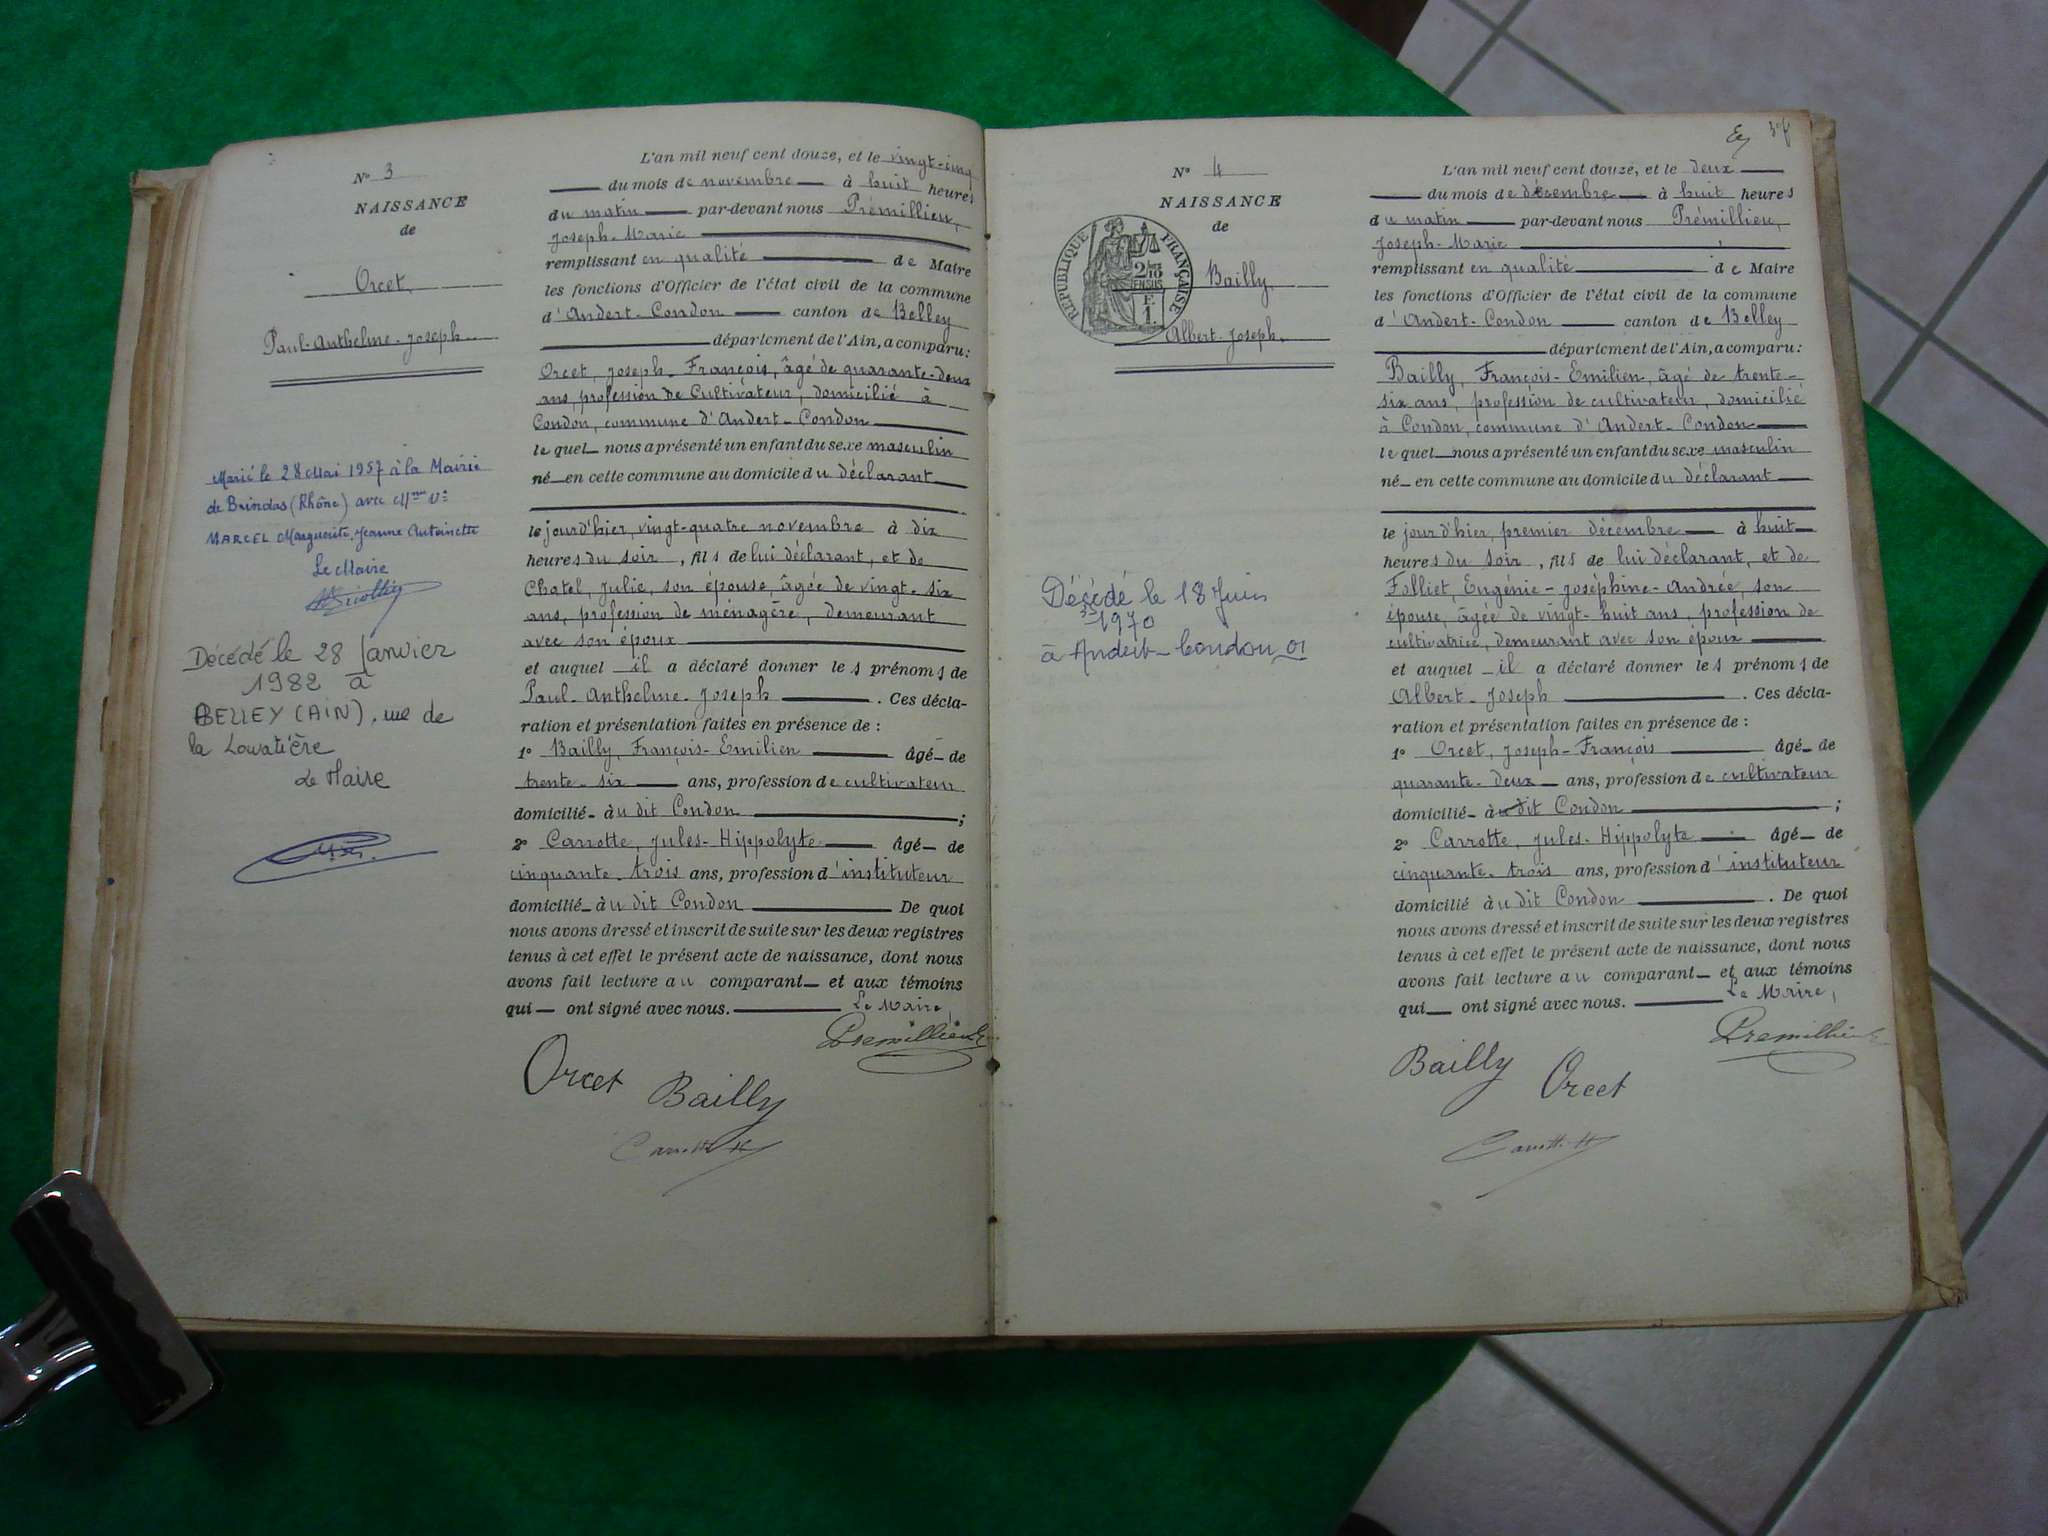 N° 3
NAISSANCE
de
Orcet,
Paul-Anthelme-Joseph
Marié le 28 Mai 1957 à la Mairie
de Brindas (Rhône) avec Mme Ve
MARCEL Marguerite, Jeanne Antoinette
Le Maire
Décédé le 28 Janvier
1982 à
BELLEY (AIN), rue de
la Louvatière
Le Maire
L'an mil neuf cent douze, et le vingt-cinq
du mois de novembre à huit heures
du matin par-devant nous Prémillieu,
Joseph-Marie
remplissant en qualité de Maire
les fonctions d'Officier de l'état civil de la commune
d'Andert-Condon canton de Belley
département de l'Ain, a comparu:
Orcet, Joseph-François, âgé de quarante-deux
ans, profession de Cultivateur, domicilié à
Condon, commune d'Andert-Condon
le quel nous a présenté un enfant du sexe masculin
né en cette commune au domicile du déclarant
le jour d'hier, vingt-quatre novembre à dix
heures du soir, fils de lui déclarant, et de
Chatel, Julie, son épouse, âgée de vingt-six
ans, profession de ménagère, demeurant
avec son époux
et auquel il a déclaré donner les prénoms de
Paul-Anthelme-Joseph. Ces décla-
ration et présentation faites en présence de :
1° Bailly, François-Emilien âgé de
trente-six ans, profession de cultivateur
domicilié au dit Condon ;
2° Carrotte, Jules-Hippolyte âgé de
cinquante-trois ans, profession d'instituteur
domicilié au dit Condon De quoi
nous avons dressé et inscrit de suite sur les deux registres
tenus à cet effet le présent acte de naissance, dont nous
avons fait lecture au comparant et aux témoins
qui ont signé avec nous. Le Maire,
Premillieu
Orcet Bailly
N° 4
NAISSANCE
de
RÉPUBLIQUE FRANÇAISE
2/10 EN SUS
1 F.
Bailly,
Albert-Joseph.
Décédé le 18 Juin
1970
à Andert-Condon 01
L'an mil neuf cent douze, et le deux
du mois de décembre à huit heures
du matin par-devant nous Prémillieu,
Joseph-Marie
remplissant en qualité de Maire
les fonctions d'Officier de l'état civil de la commune
d'Andert-Condon canton de Belley
département de l'Ain, a comparu :
Bailly, François-Emilien, âgé de trente-
six ans, profession de cultivateur, domicilié
à Condon, commune d'Andert-Condon
le quel nous a présenté un enfant du sexe masculin
né en cette commune au domicile du déclarant
le jour d'hier, premier décembre à huit
heures du soir, fils de lui déclarant, et de
Folliet, Eugénie-Joséphine-Andrée, son
épouse, âgée de vingt-huit ans, profession de
cultivatrice, demeurant avec son époux
et auquel il a déclaré donner les prénoms de
Albert-Joseph. Ces décla-
ration et présentation faites en présence de :
1° Orcet, Joseph-François âgé de
quarante-deux ans, profession de cultivateur
domicilié au dit Condon ;
2° Carrotte, Jules-Hippolyte âgé de
cinquante-trois ans, profession d'instituteur
domicilié au dit Condon. De quoi
nous avons dressé et inscrit de suite sur les deux registres
tenus à cet effet le présent acte de naissance, dont nous
avons fait lecture au comparant et aux témoins
qui ont signé avec nous. Le Maire,
Premillieu
Bailly Orcet